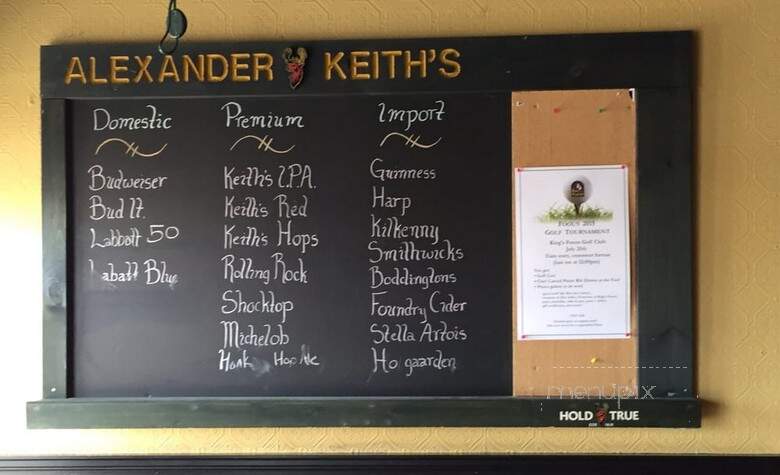 ALEXANDER KEITH'S
Domestic
Budweiser
Bud lt.
Labbott 50
Labatt Blue
Premium
Keith's I.P.A.
Keith's Red
Keith's Hops
Rolling Rock
Shocktop
Michelob
Hop Ale
Import
Guinness
Harp
Kilkenny
Smithwicks
Boddingtons
Foundry Cider
Stella Artois
Ho gaarden
2015
GOLF TOURNAMENT
Golf Club
July
menupix
HOLD TRUE